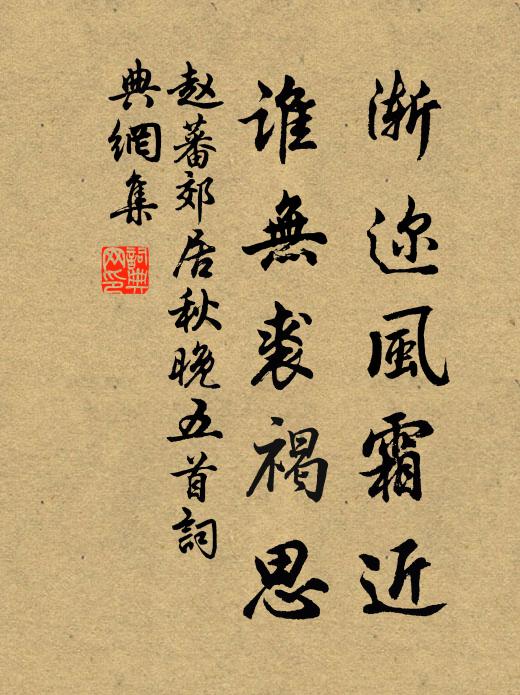 渐迩風霜近
谁無裘褐思
赵蕃郊居秋晚五首詞
典網集
詞典
网印